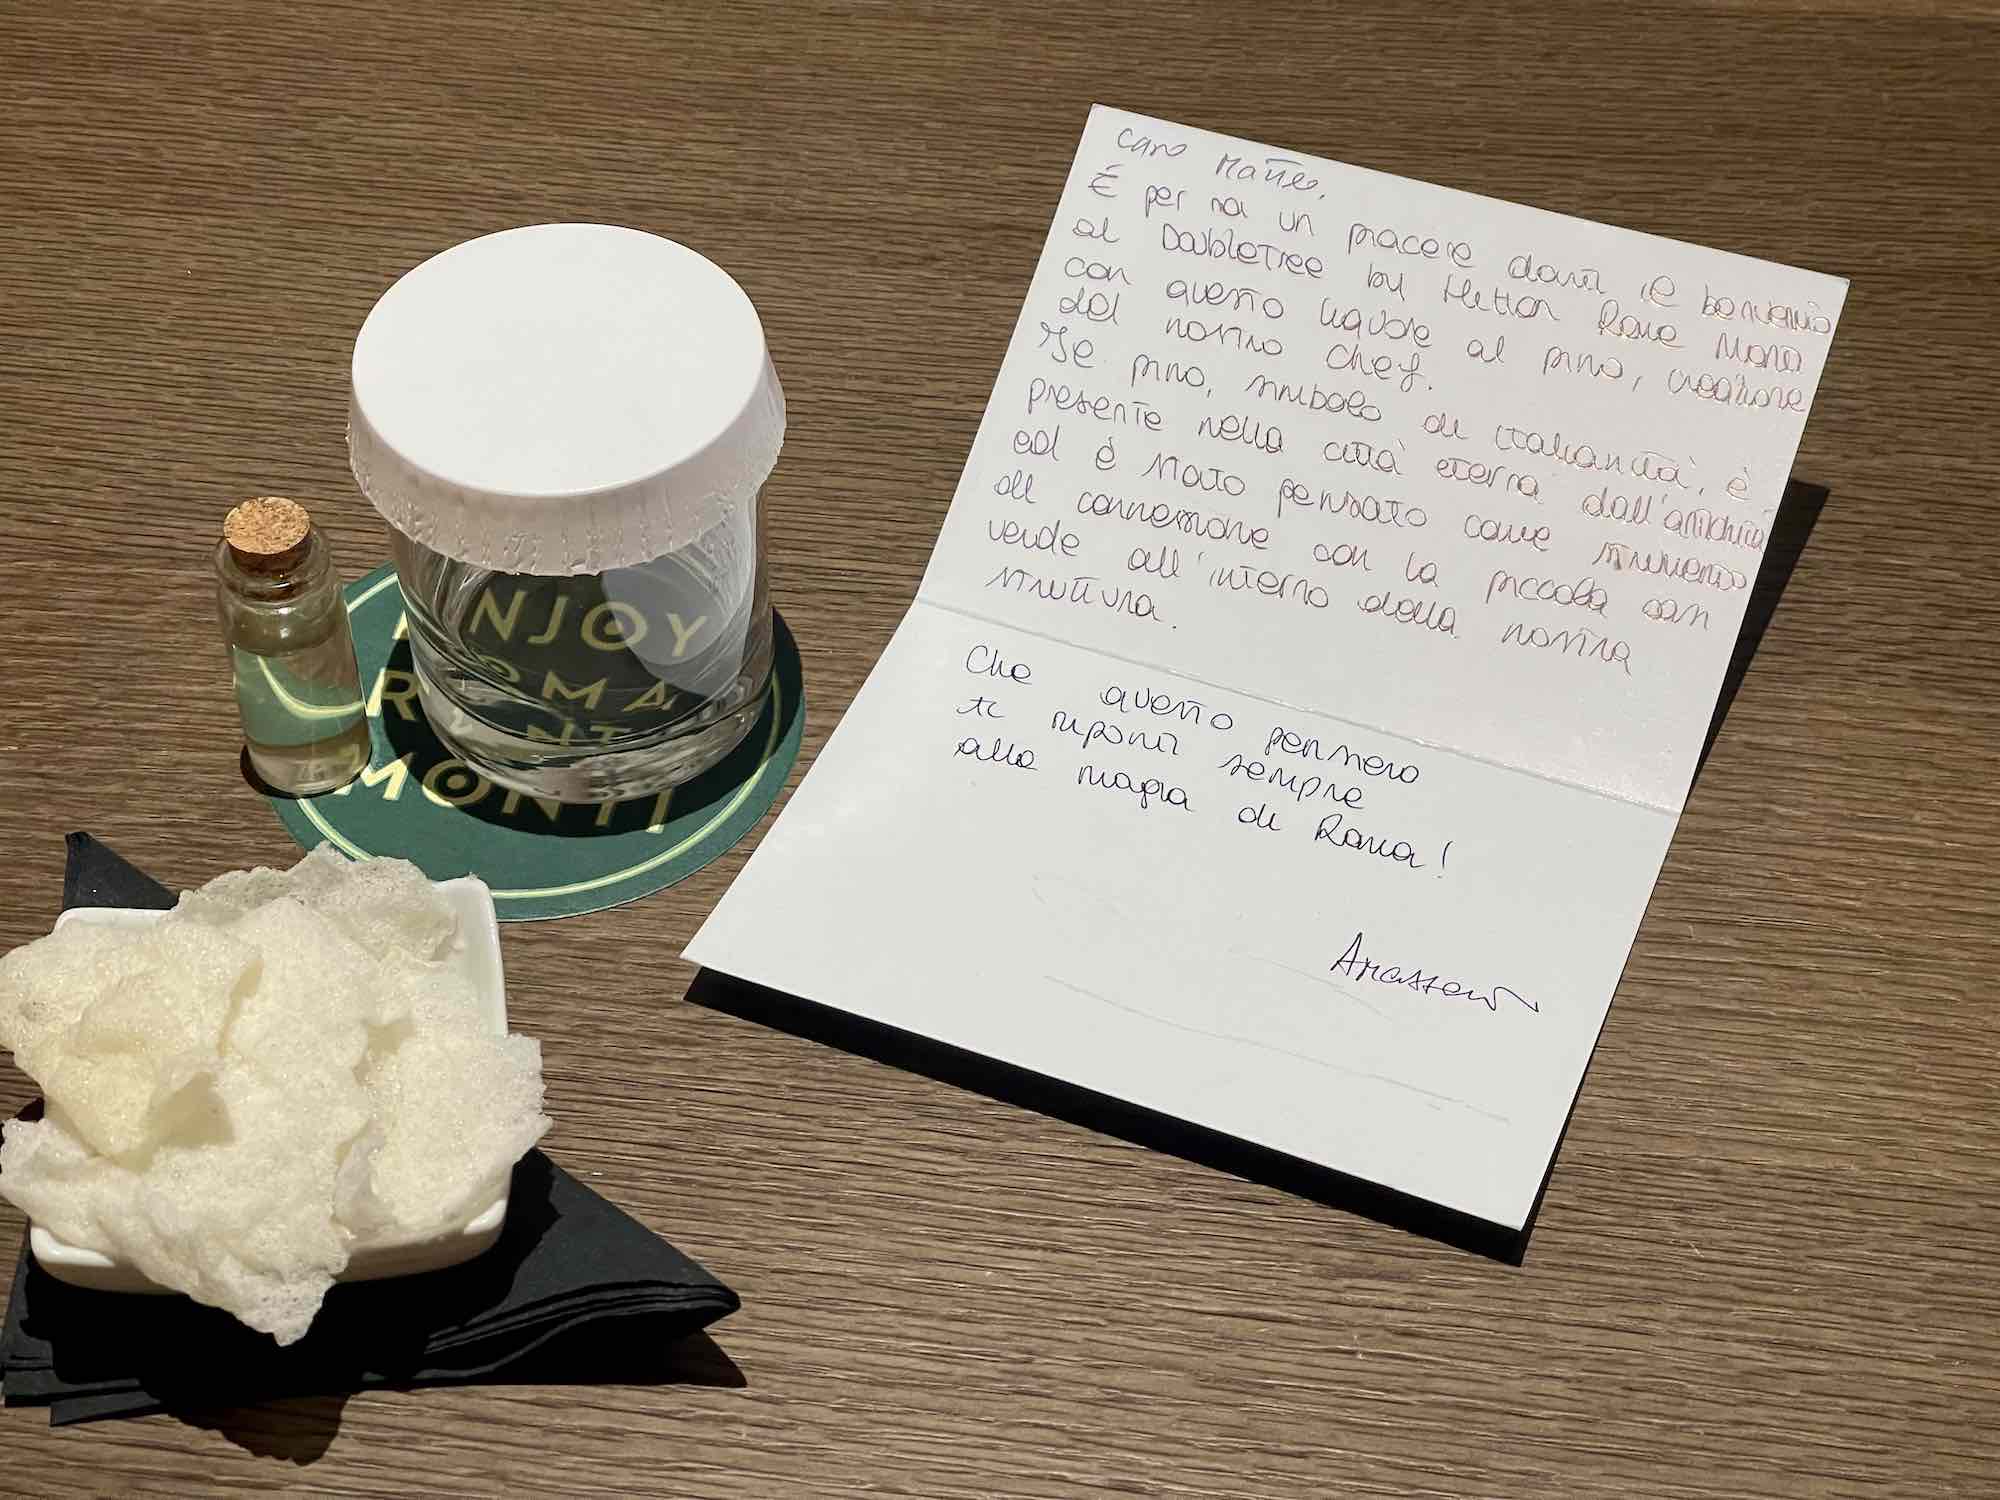 ENJOY
ROMA
MONTI
Caro Matteo,
È per noi un piacere darti il benvenuto
al DoubleTree by Hilton Rome Monti
con questo liquore al pino, creazione
del nostro chef.
Il pino, simbolo di italianità, è
presente nella città eterna dall'antichità
ed è stato pensato come strumento
di connessione con la piccola oasi
verde all'interno della nostra
struttura.
Che questo pensiero
ti riporti sempre
alla magia di Roma!